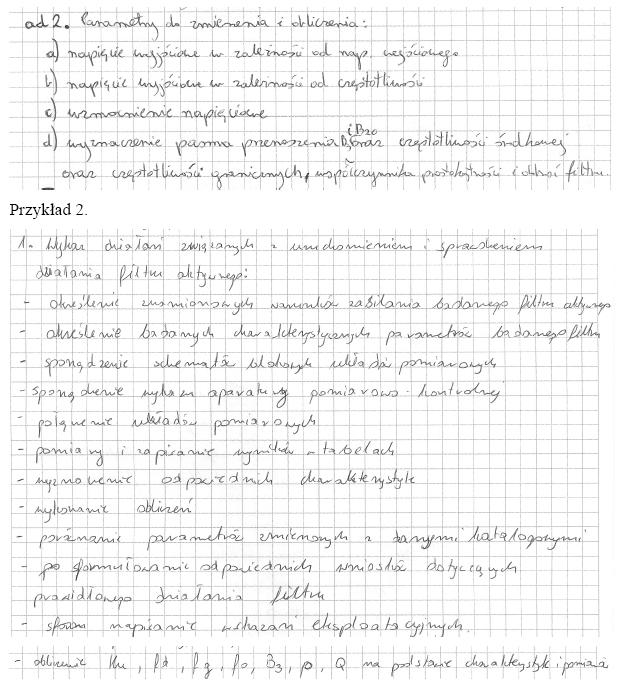 ad 2. Parametry do zmierzenia i obliczenia:
a) napięcie wyjściowe w zależności od nap. wejściowego
b) napięcie wyjściowe w zależności od częstotliwości
c) wzmocnienie napięciowe
d) wyznaczenie pasma przenoszenia B3 i B20 oraz częstotliwości środkowej
oraz częstotliwości granicznych, współczynnika prostokątności i dobroć filtru.
Przykład 2.
1. Wykaz działań związanych z uruchomieniem i sprawdzeniem
działania filtru aktywnego:
- określenie znamionowych warunków zasilania badanego filtru aktywnego
- określenie badanych charakterystycznych parametrów badanego filtru
- sporządzenie schematów blokowych układów pomiarowych
- sporządzenie wykazu aparatury pomiarowo-kontrolnej
- połączenie układów pomiarowych
- pomiary i zapisanie wyników w tabelach
- wyznaczenie odpowiednich charakterystyk
- wykonanie obliczeń
- porównanie parametrów zmierzonych z danymi katalogowymi
- po sformułowanie odpowiednich wniosków dotyczących
prawidłowego działania filtru
- napisanie wskazań eksploatacyjnych.
- obliczenie ku, fd, fg, fo, B3, p, Q na podstawie charakterystyk i pomiarów